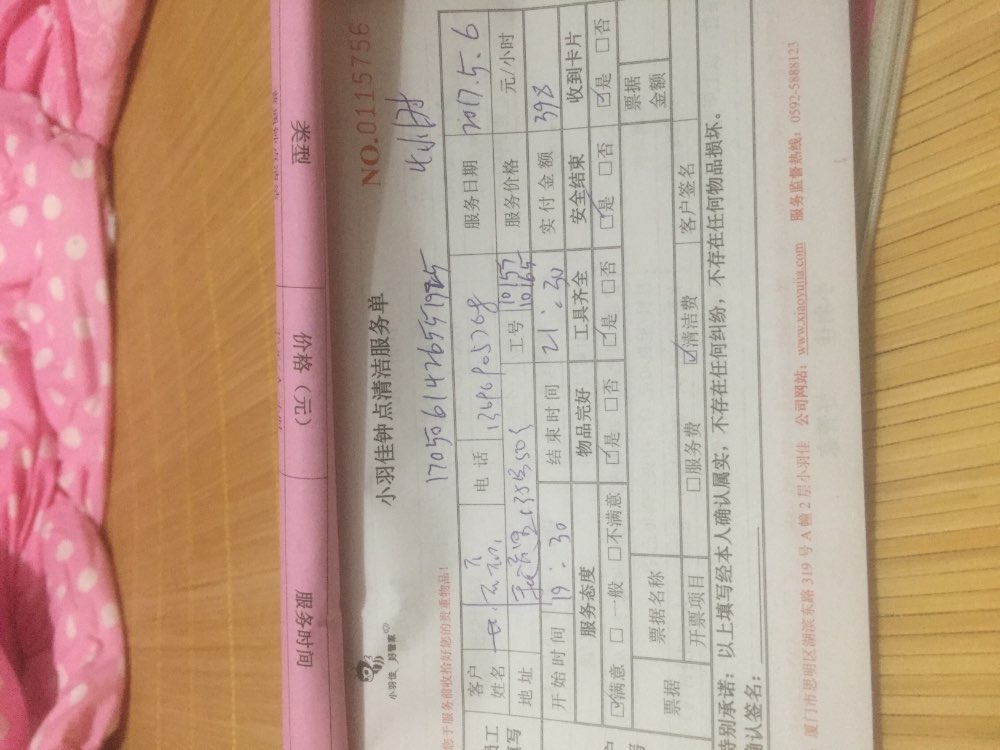 类型
价格（元）
服务时间
NO.0115756
小羽佳钟点清洁服务单
小羽佳 好管家
您于服务前收拾好您的贵重物品！
客户姓名
电话
服务日期 2017.5.6
地址
工号 10155 10165
服务价格 元/小时
开始时间 19:30 结束时间 21:30 实付金额 398
服务态度 物品完好 工具齐全 安全结束 收到卡片
☑满意 □一般 □不满意 ☑是 □否 ☑是 □否 ☑是 □否 ☑是 □否
票据
票据名称
票据金额
开票项目 □服务费 ☑清洁费 客户签名
特别承诺：以上填写经本人确认属实，不存在任何纠纷，不存在任何物品损坏。
确认签名：
厦门市思明区湖滨东路319号A幢2层小羽佳 公司网站：www.xiaoyujia.com 服务监督热线：0592-5888123